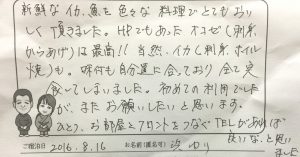 新鮮なイカ、魚を色々な料理でとてもおいし
く頂きました。HPでもあったオコゼ(刺身、
からあげ)は最高!!当然、イカ(刺身、ホイル
焼)も。味付も自分達に合っており全て完
食してしまいました。初めての利用でした
が、またお願いしたいと思います。
お部屋とフロントをつなぐTELがあれば
良いな。と思い
ました
ご宿泊日 2016.8.16 お名前(匿名可)